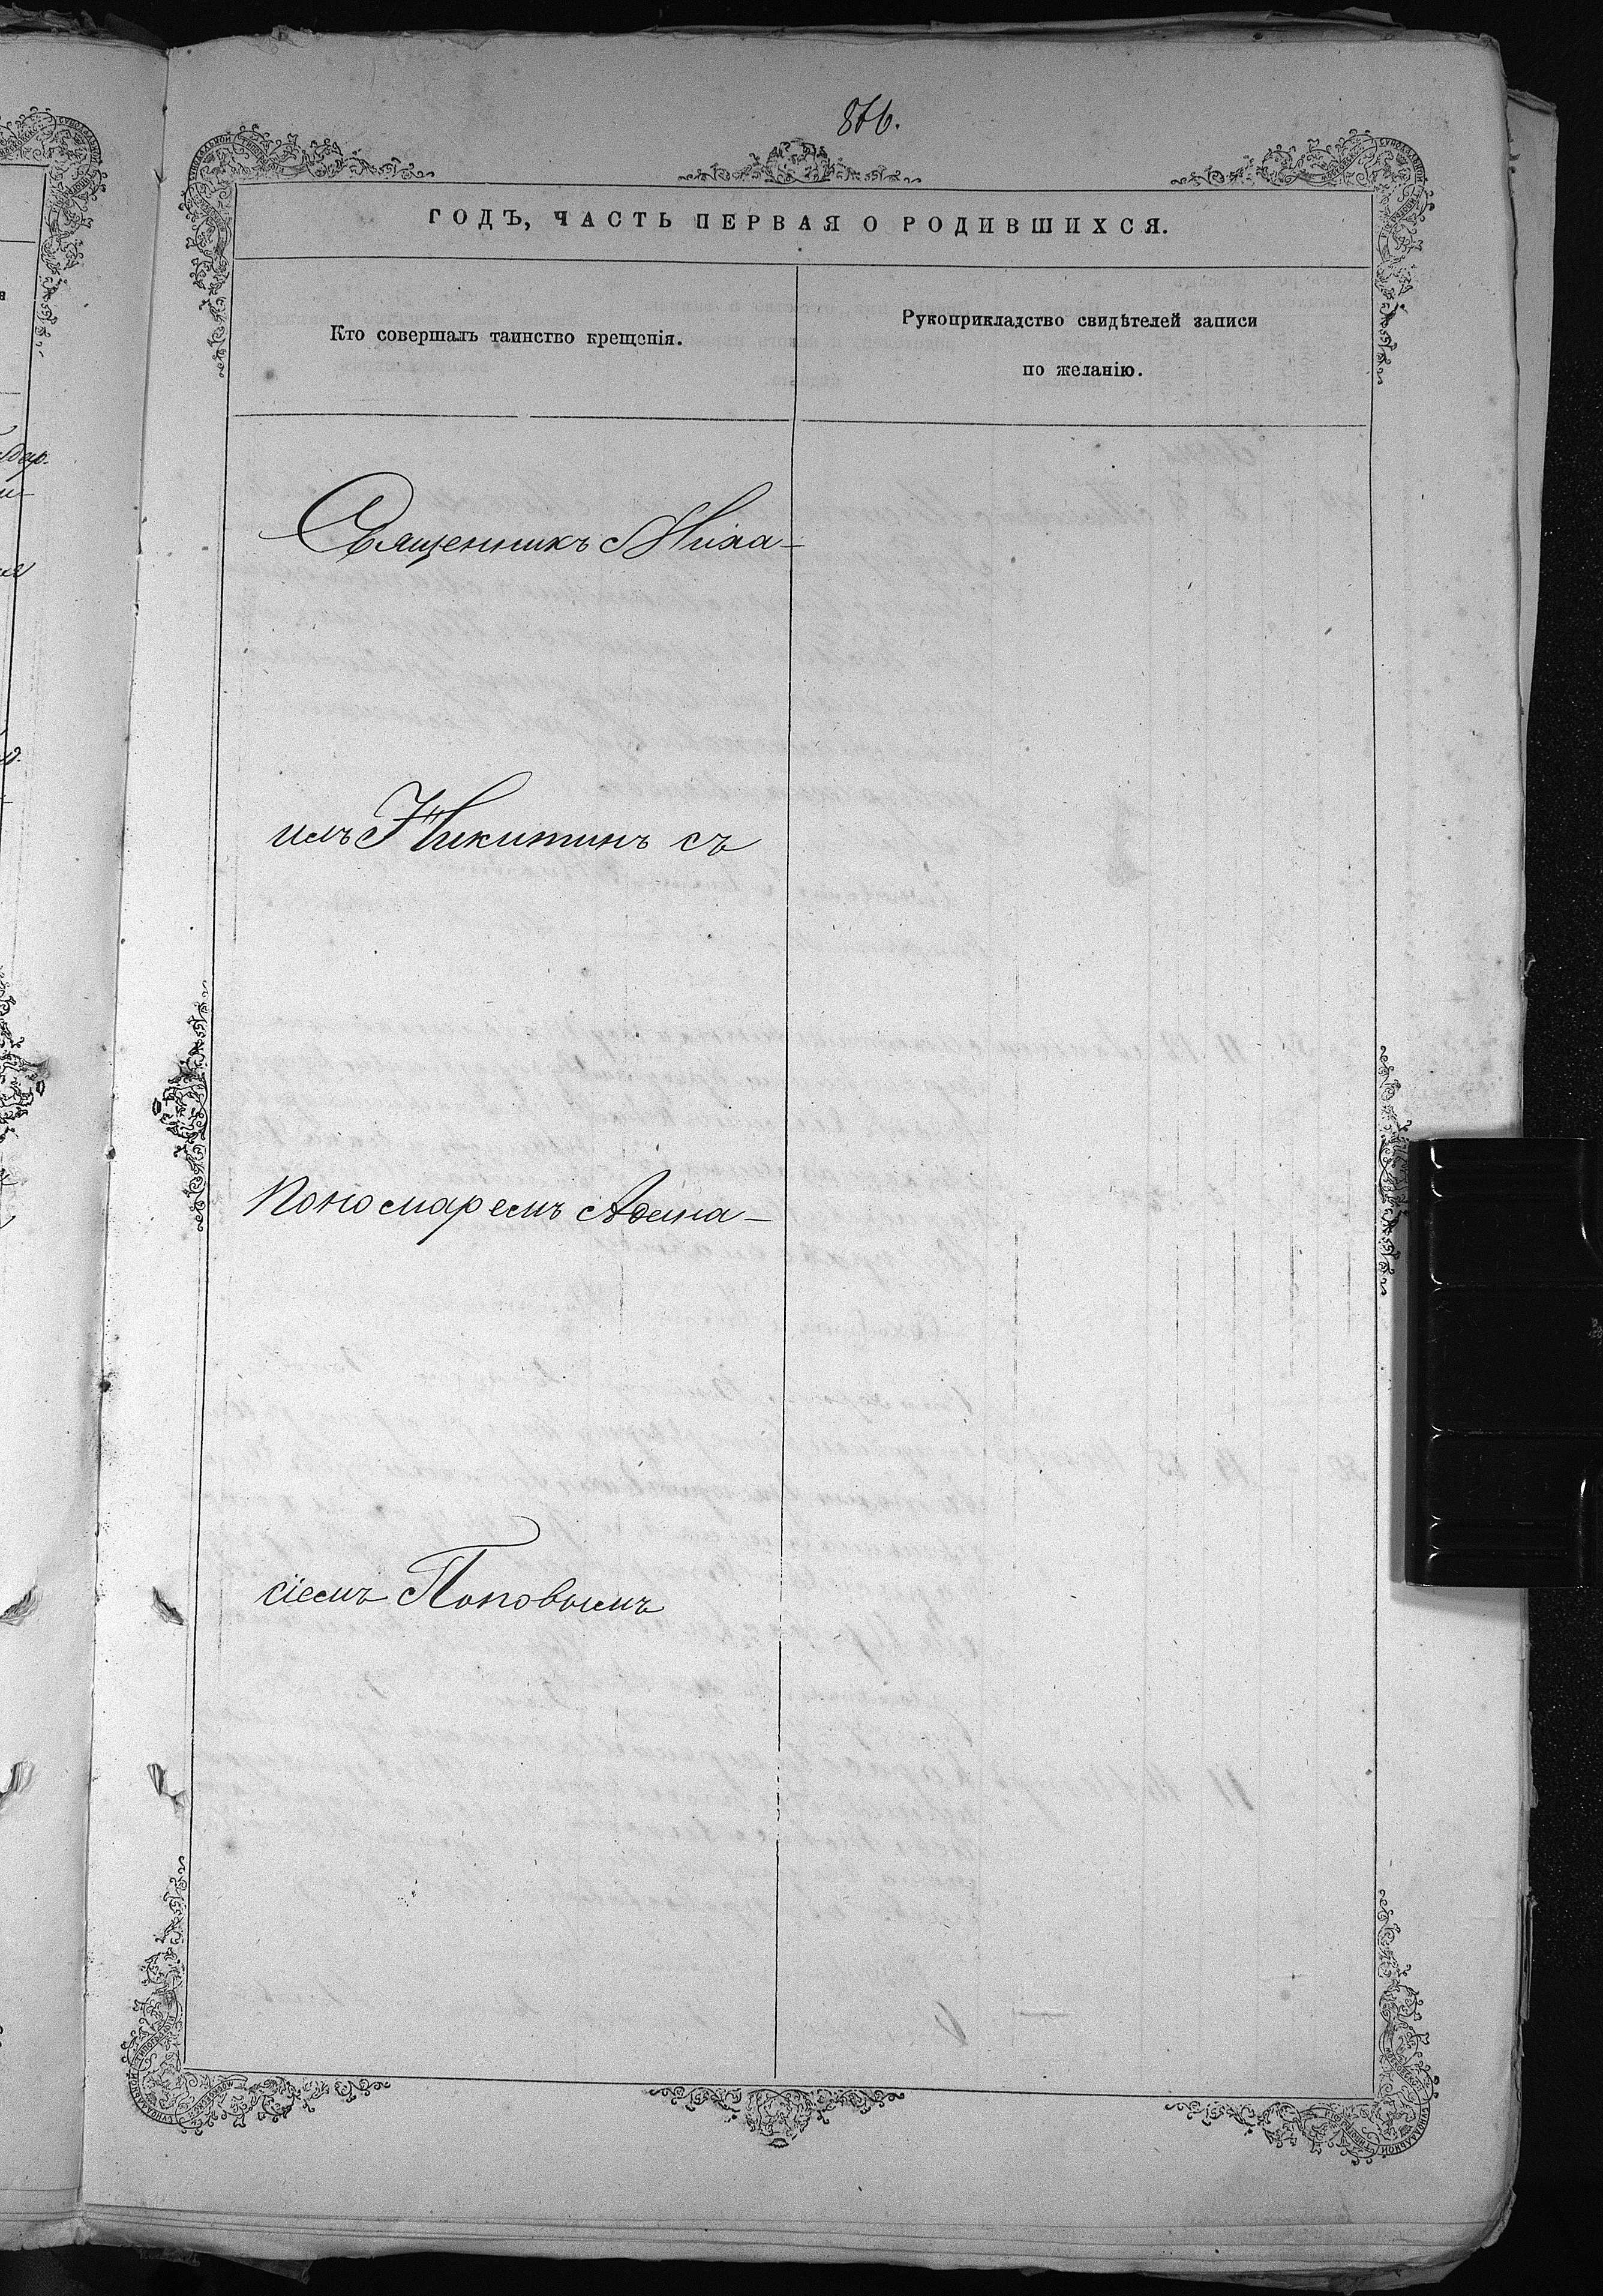 866.
ГОДЪ, ЧАСТЬ ПЕРВАЯ О РОДИВШИХСЯ.
Кто совершалъ таинство крещенія.
Рукоприкладство свидѣтелей записи
по желанію.
Священникъ Миха-
илъ Никитинъ съ
Пономаремъ Афана-
сіемъ Поповымъ